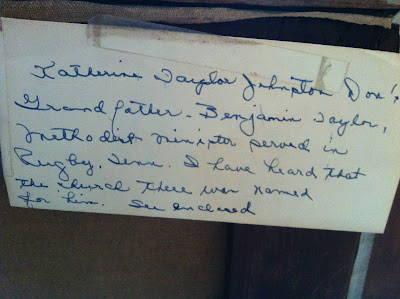 Katherine Taylor Johnston Don's
Grandfather - Benjamin Taylor,
Methodist minister served in
Rugby, Tenn. I have heard that
the church there was named
for him. See enclosed